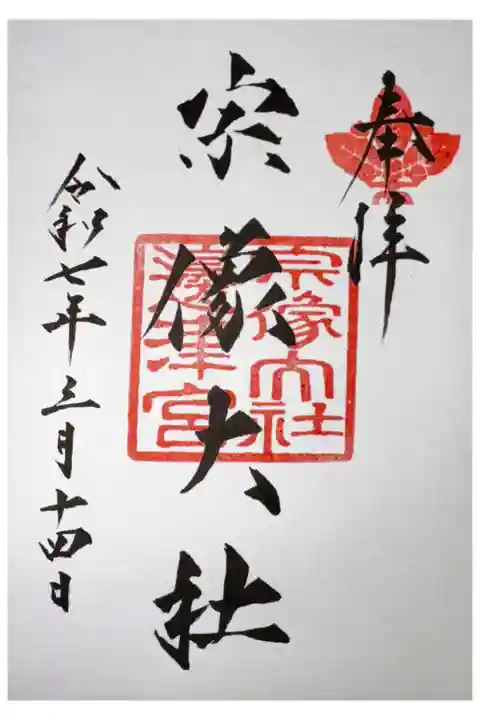 奉拝
宗像大社
宗像大社
邊津宮
令和七年三月十四日